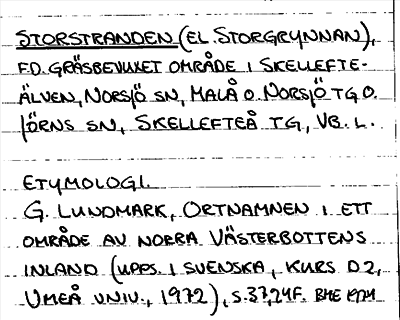 STORSTRANDEN (EL. STORGRYNNAN),
F.D. GRÄSBEVUXET OMRÅDE I SKELLEFTE-
ÄLVEN, NORSJÖ SN, MALÅ O. NORSJÖ TG O.
JÖRNS SN, SKELLEFTEÅ TG, VB. L.
ETYMOLOGI.
G. LUNDMARK, ORTNAMNEN I ETT
OMRÅDE AV NORRA VÄSTERBOTTENS
INLAND (UPPS. I SVENSKA, KURS D2,
UMEÅ UNIV., 1972), S. 37, 24F.